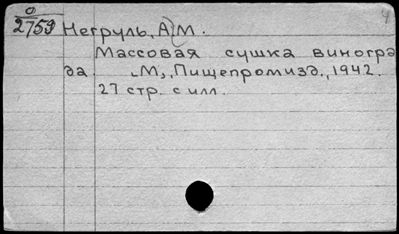 0
2759 Негруль, А.М.
Массовая сушка виногра
да. М., Пищепромизд., 1942.
27 стр. с илл.